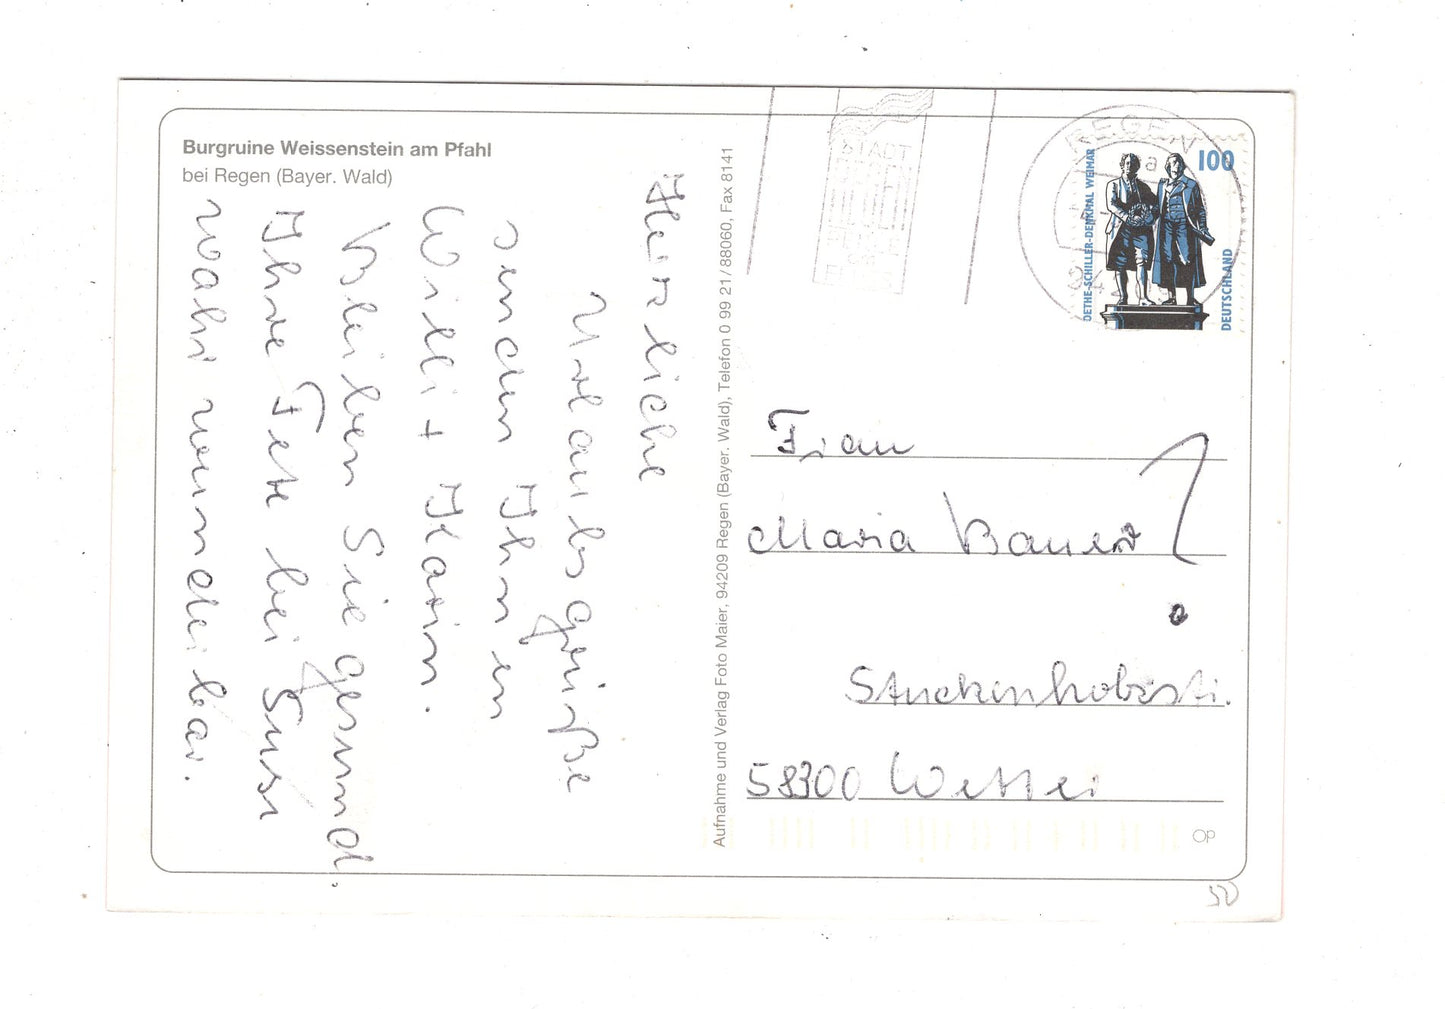 Burgruine Weissenstein am Pfahl
bei Regen (Bayer. Wald)
Herzliche
Urlaubsgrüße
senden Ihnen
Willi + Karin.
Bleiben Sie gesund.
Ihre Fete bei Susi
wahr wunderbar.
Aufnahme und Verlag Foto Maier, 94209 Regen (Bayer. Wald), Telefon 0 99 21/88060, Fax 8141
STADT
REGEN
100
OETHE-SCHILLER-DENKMAL WEIMAR
DEUTSCHLAND
Frau
Maria Bauer
58300 Wetter
Op
50